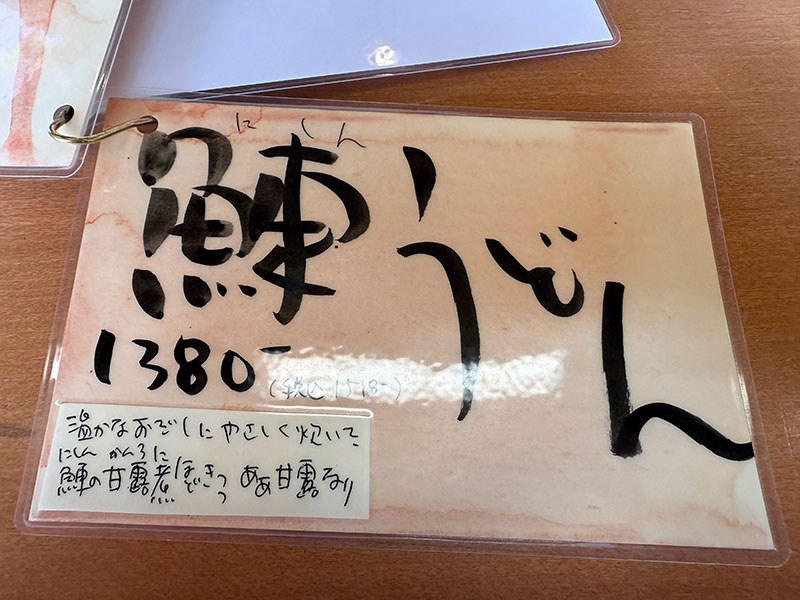 にしん
鰊うどん
1380-
(税込1518-)
温かなおだしにやさしく炊いた
にしん かんろに
鰊の甘露煮ほどきつつ ああ甘露なり